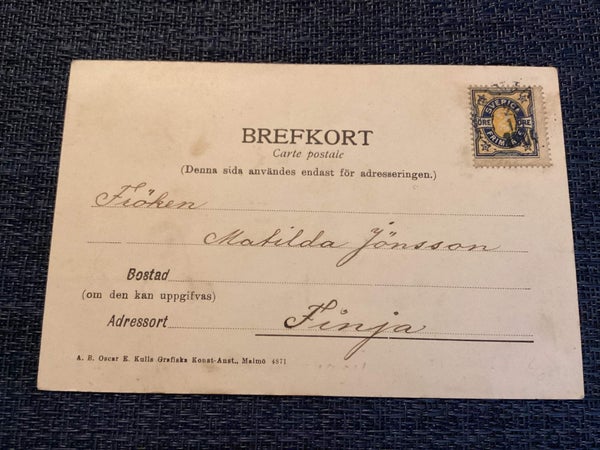 SVERIGE
ÖRE ÖRE
FRIM
BREFKORT
Carte postale
(Denna sida användes endast för adresseringen.)
Fröken
Matilda Jönsson
Bostad
(om den kan uppgifvas)
Adressort Finja
A. B. Oscar E. Kulls Grafiska Konst-Anst., Malmö 4871